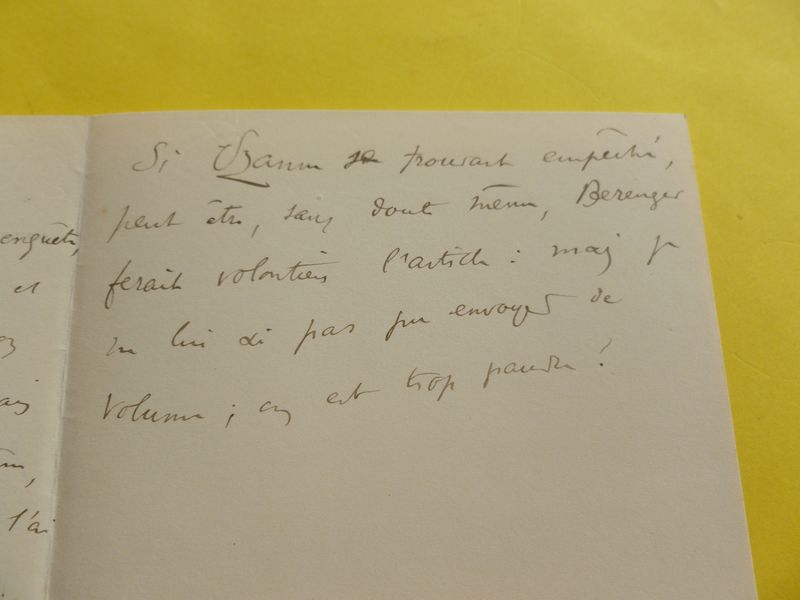 Si Uzanne se trouvait empêché,
peut être, sans doute même, Berenger
ferait volontiers l'article : mais je
ne lui ai pas pu envoyer de
volume ; on est trop pauvre !
enquête,
et
ais
l'ai